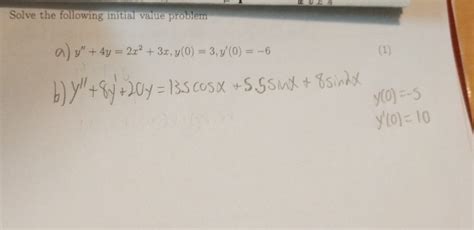 Solve the following initial value problem
a) y'' + 4y = 2x² + 3x, y(0) = 3, y'(0) = −6 (1)
b) y'' + 8y' + 20y = 13.5cosx + 5.5sinx + 8sin2x
y(0) = -5
y'(0) = 10